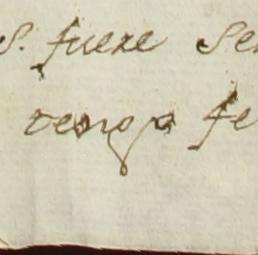 S. fuere Se
tenga fe